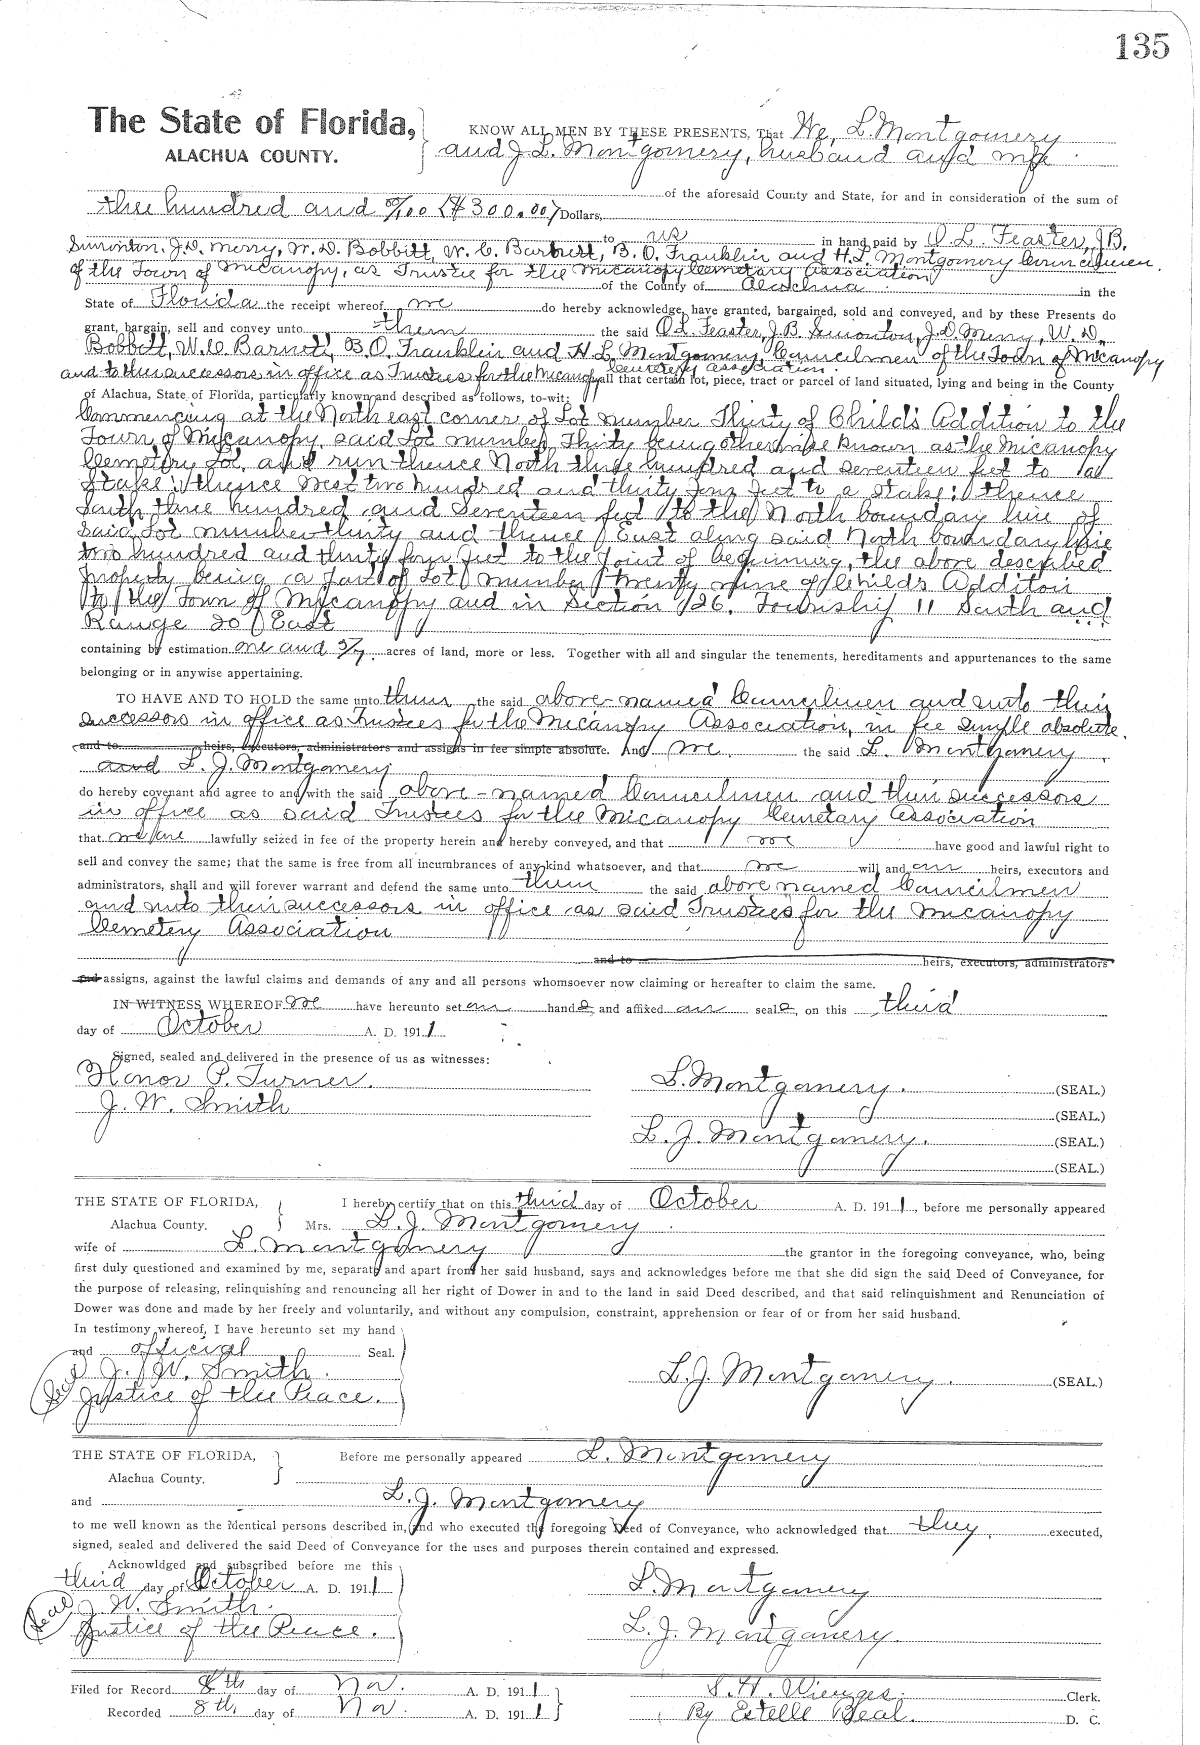 135
The State of Florida,
ALACHUA COUNTY.
KNOW ALL MEN BY THESE PRESENTS, That We, L. Montgomery
and J L. Montgomery, husband and wife
of the aforesaid County and State, for and in consideration of the sum of
three hundred and 00/100 ($300.00) Dollars,
to us in hand paid by O L. Feaster, J.B.
Simonton. J.D. Merry, W. D. Bobbitt, W. C. Barnett, B. O. Franklin and H.L. Montgomery Councilmen.
of the Town of Micanopy, as Trustee for the Micanopy Cemetary Association
of the County of Alachua in the
State of Florida the receipt whereof we do hereby acknowledge, have granted, bargained, sold and conveyed, and by these Presents do
grant, bargain, sell and convey unto them the said O L. Feaster, J.B. Simonton, J.D. Merry, W. D.
Bobbitt, W. C. Barnett, B. O. Franklin and H. L. Montgomery, Councilmen of the Town of Micanopy
and to their successors in office as Trustees for the Micanopy Cemetery association. all that certain lot, piece, tract or parcel of land situated, lying and being in the County
of Alachua, State of Florida, particularly known and described as follows, to-wit:
Commencing at the North east corner of Lot number Thirty of Childs Addition to the
Town of Micanopy, said Lot number Thirty being otherwise known as the Micanopy
Cemetery Lot, and run thence North three hundred and seventeen feet to a
Stake: thence West two hundred and thirty four feet to a stake: thence
South three hundred and seventeen feet to the North boundary line of
said Lot number thirty and thence East along said North boundary line
two hundred and thirty four feet to the Point of beginning, the above described
Property being a part of Lot number twenty nine of Childs Additon
to the Town of Micanopy and in Section 26. Township 11 South and
Range 20 East
containing by estimation one and 5/7 acres of land, more or less. Together with all and singular the tenements, hereditaments and appurtenances to the same
belonging or in anywise appertaining.
TO HAVE AND TO HOLD the same unto them the said above-named Councilmen and unto their
successors in office as Trustees for the Micanopy Association, in fee simple absolute.
and to heirs, executors, administrators and assigns in fee simple absolute. And we the said L. Montgomery
and L. J. Montgomery
do hereby covenant and agree to and with the said above-named Councilmen and their successors
in office as said Trustees for the Micanopy Cemetary Association
that we are lawfully seized in fee of the property herein and hereby conveyed, and that we have good and lawful right to
sell and convey the same; that the same is free from all incumbrances of any kind whatsoever, and that we will and our heirs, executors and
administrators, shall and will forever warrant and defend the same unto them the said above named Councilmen
and unto their successors in office as said Trustees for the Micanopy
Cemetery Association
and to heirs, executors, administrators
and assigns, against the lawful claims and demands of any and all persons whomsoever now claiming or hereafter to claim the same.
IN WITNESS WHEREOF we have hereunto set our hands and affixed our seals, on this third
day of October A. D. 1911.
Signed, sealed and delivered in the presence of us as witnesses:
Honor P. Turner.
J. W. Smith
L. Montgomery. (SEAL.)
(SEAL.)
L. J. Montgomery. (SEAL.)
(SEAL.)
THE STATE OF FLORIDA,
Alachua County.
I hereby certify that on this third day of October A. D. 1911, before me personally appeared
Mrs. L. J. Montgomery
wife of L. Montgomery the grantor in the foregoing conveyance, who, being
first duly questioned and examined by me, separate and apart from her said husband, says and acknowledges before me that she did sign the said Deed of Conveyance, for
the purpose of releasing, relinquishing and renouncing all her right of Dower in and to the land in said Deed described, and that said relinquishment and Renunciation of
Dower was done and made by her freely and voluntarily, and without any compulsion, constraint, apprehension or fear of or from her said husband.
In testimony whereof, I have hereunto set my hand
and official Seal.
J. W. Smith.
Seal
Justice of the Peace.
L. J. Montgomery. (SEAL.)
THE STATE OF FLORIDA,
Alachua County.
Before me personally appeared L. Montgomery
and L. J. Montgomery
to me well known as the identical persons described in, and who executed the foregoing Deed of Conveyance, who acknowledged that they executed,
signed, sealed and delivered the said Deed of Conveyance for the uses and purposes therein contained and expressed.
Acknowldged and subscribed before me this
third day of October A. D. 1911
J. W. Smith.
Seal
Justice of the Peace.
L. Montgomery
L. J. Montgomery.
Filed for Record 8th day of Nov. A. D. 1911
Recorded 8th day of Nov. A. D. 1911
S. H. Wienges. Clerk.
By Estelle Beal. D. C.